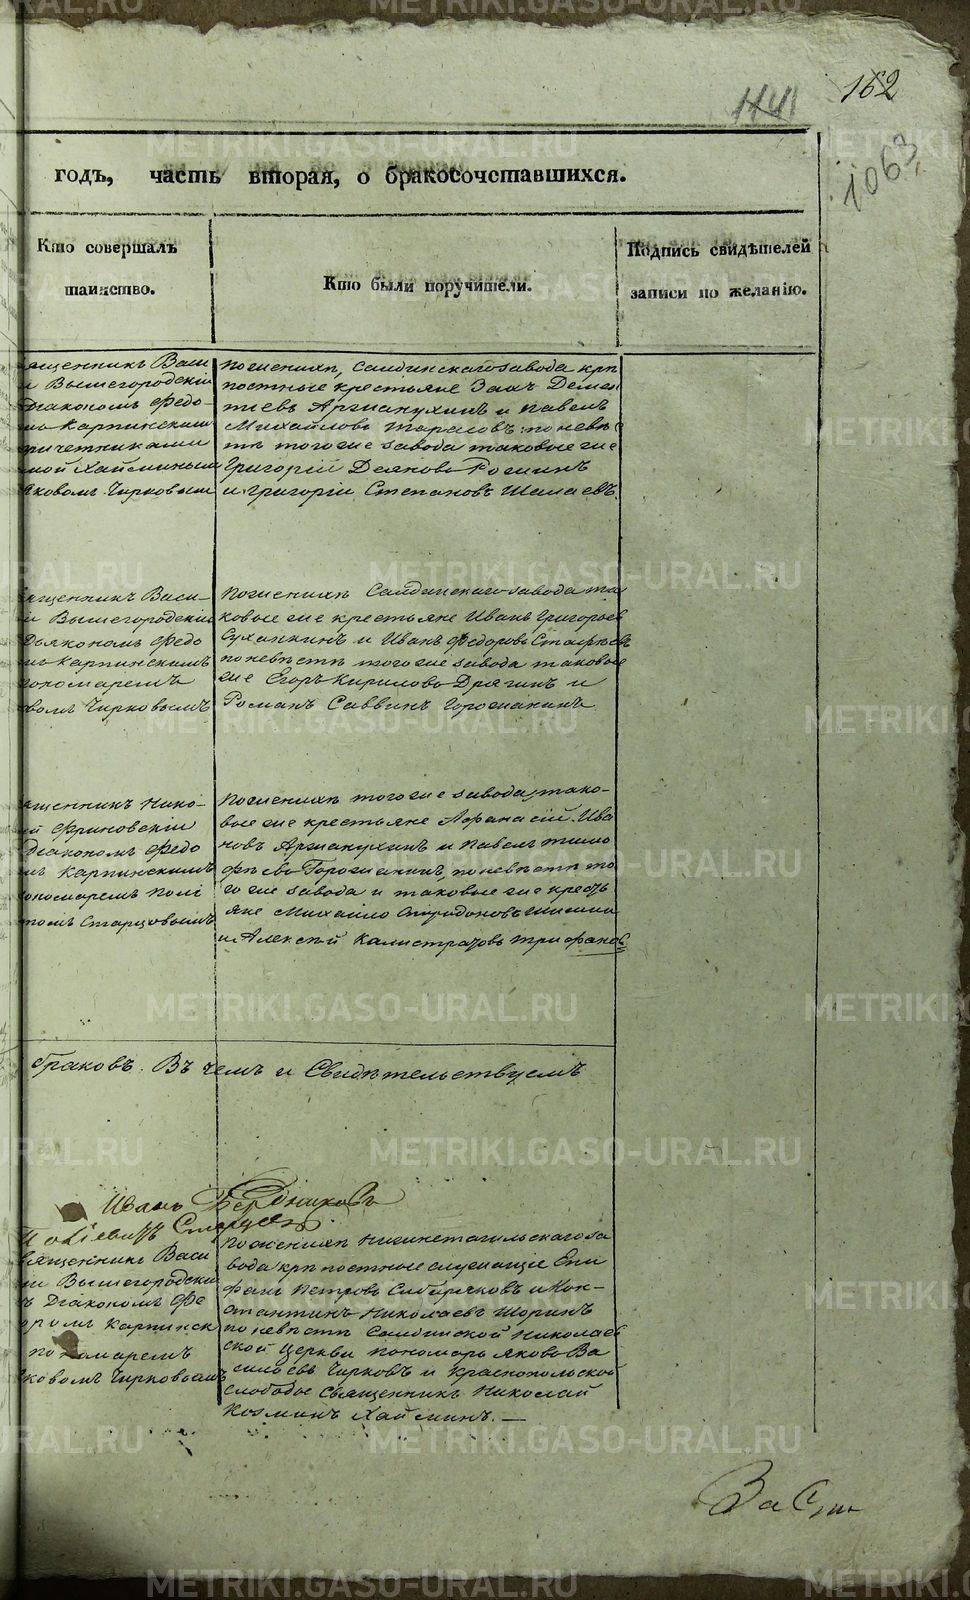 162
1141
1063
годъ, часть вторая, о бракосочетавшихся.
Кто совершалъ
таинство.
Кто были поручители.
Подпись свидѣтелей
записи по желанію.
ященникъ Васи
и Вышегородскій
Діакономъ Федо-
мъ Карпинскимъ
причетниками
мой Хайминымъ
яковомъ Чирковым
по женихѣ, Салдинскаго завода крѣ
постные крестьяне Демен
тіевъ Аржанухинъ и Павелъ
Михайловъ Тарасовъ: по невѣс
тѣ того же завода таковые же
Григорій Деяновъ
и Григорій Степановъ Шалаевъ.
ященникъ Васи-
й Вышегородскій
Дьякономъ Федо
мъ Карпинскимъ
пономаремъ
вомъ Чирковымъ
по женихѣ Салдинскаго завода та
ковые же крестьяне Иванъ Григорьев
Суханкинъ и Иванъ Федоровъ
по невѣстѣ того же завода таковые
же Егоръ Кириловъ Дрягинъ и
Романъ Саввинъ Горожанинъ.
ященникъ Нико-
ай Фриновскій
Діакономъ Федо
мъ Карпинскимъ
пономаремъ Полі
томъ Старцовымъ
по женихѣ того же завода, тако-
вые же крестьяне Афанасій Ива
новъ Аржанухинъ и Павелъ Тимо
фѣевъ Горожанин, по невѣстѣ то
го же завода и таковые же кресть
яне Михайло Спиридоновъ
и Алексѣй Калистратовъ Трифанов
браковъ. Въ чемъ и Свидѣтельствуемъ
Иванъ Бердниковъ
Старцевъ
священникъ Васи
ій Вышегородски
ъ Діакономъ Фе
оромъ Карпинск
пономаремъ
ковомъ Чирковымъ
по женихѣ Нижнетагильскаго за
вода крѣпостные служащіе Епи
фанъ Петровъ Сибиряковъ и Кон-
стантинъ Николаевъ Шоринъ
по невѣстѣ Салдинской Николаев
ской Церкви пономарь Яковъ Ва
сильевъ Чирковъ и Краснопольской
слободы Священникъ Николай
Козминъ Хайминъ. —